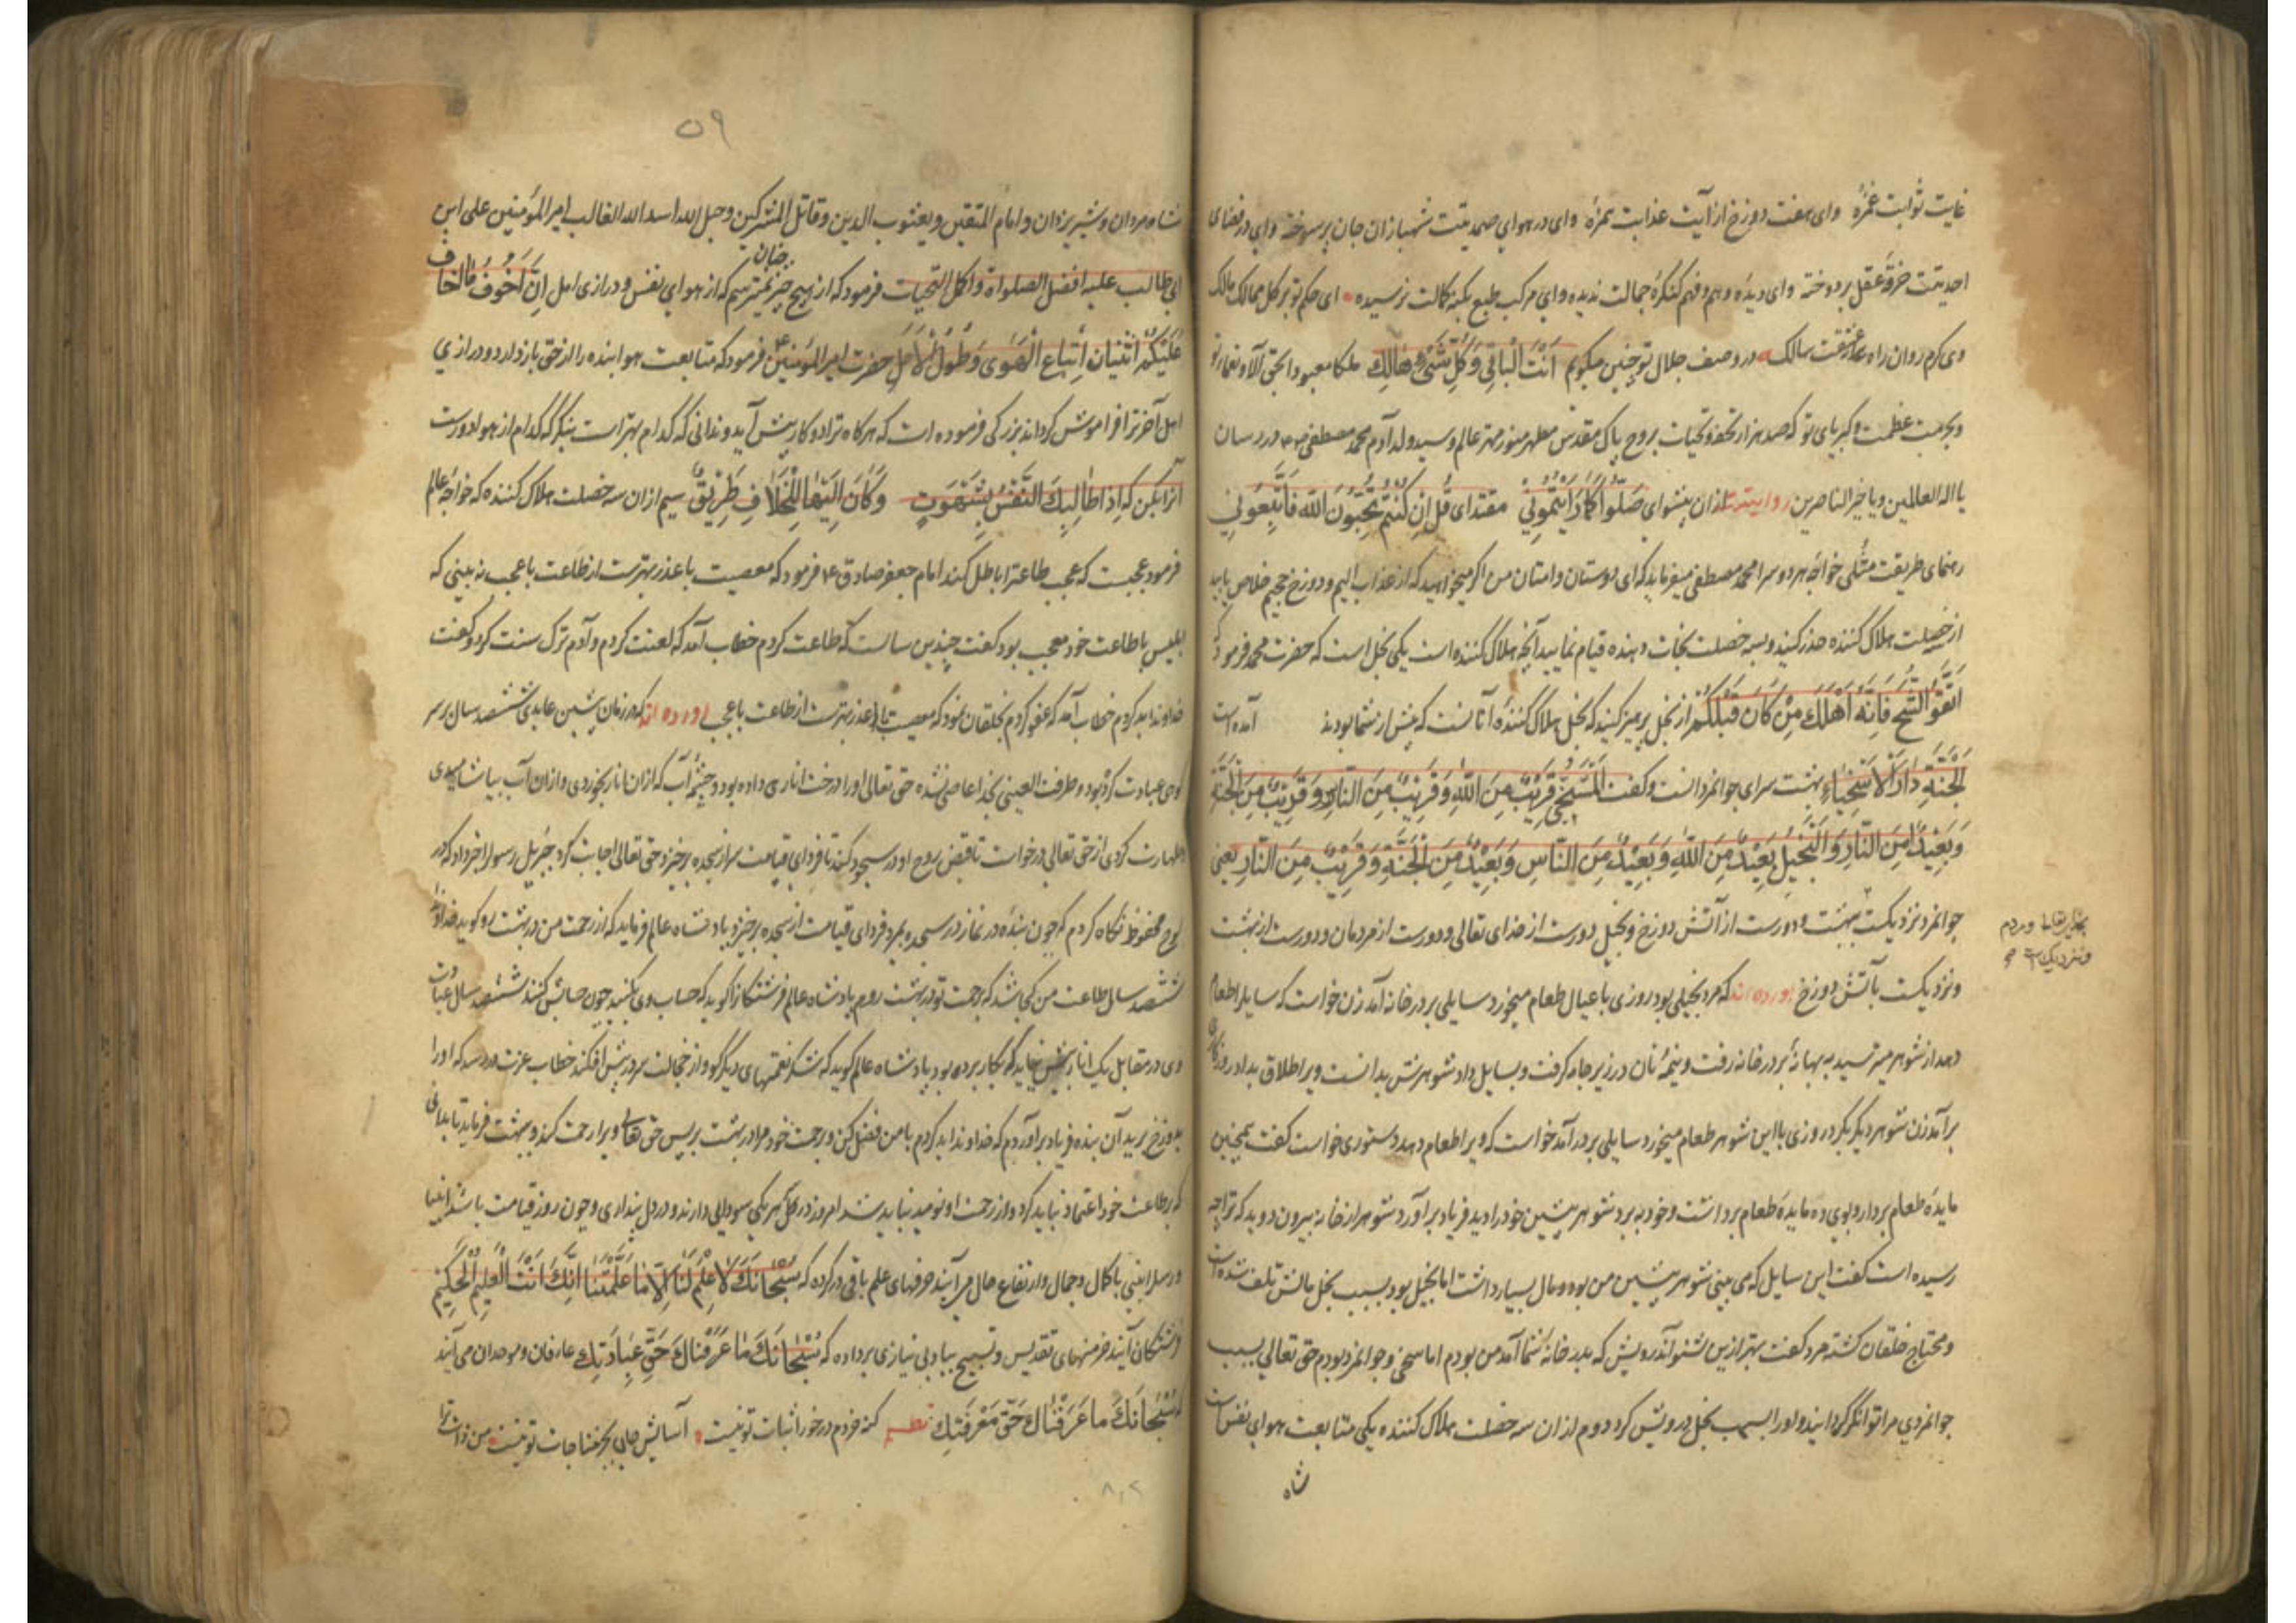 غایت ثوابت غمزهٔ وای هفت دوزخ از آیت عذابت همزهٔ وای در هوای صمدیتت شهبازان جان پر سوخته وای در فضای
احدیتت خرقهٔ عقل بر دوخته وای دیدهٔ وهم و فهم کنگرهٔ جمالت ندیده وای مرکب طبع بکنه کمالت نرسیده ای حکم تو بر کل ممالک مالک
وی کرم روان راه عشقت سالک در وصف جلال تو چنین میکویم اَنْتَ الْبٰاقِی وَ کُلِّ شَیْءٍ هٰالِکِ ملکا معبودا بحق آلا و نعماء تو
و بحرمت عظمت و کبریای تو که صد هزار تحفه و تحیات بروح پاک مقدس مطهر منور مهتر عالم و سید ولد آدم محمد مصطفی در رسان
یا اله العالمین و یا خیر الناصرین روایتست ازان پیشوای صَلُّوا کَمٰا رَاَیْتُمُونِی مقتدای قُلْ اِنْ کُنْتُمْ تُحِبُّونَ اللّٰهَ فَاتَّبِعُونِی
رهنمای طریقت مثلی خواجهٔ هر دو سرا محمد مصطفی میفرماید که ای دوستان و امتان من اکر میخواهید که از عذاب الیم و دوزخ جحیم خلاص یابید
از خصلت هلاک کننده حذر کنید و بسه خصلت نجات دهنده قیام نمایید آنچه هلاک کننده است یکی بخل است که حضرت محمد فرمود که
اتَّقَوُا الشُّحَ فَاِنَّهُ اَهْلَکَ مِنْ کٰانَ قَبْلَکُمْ از بخل پرهیز کنید که بخل هلاک کنندهٔ آنانست که پیش از شما بودند آمده است
اَلْجَنَّةِ دٰارُ الْاَسْخِیٰاءِ بهشت سرای جوانمردانست و کفت اَلسَّخِیُّ قَرِیْبٌ مِنَ اللّٰهِ وَ قَرِیْبٌ مِنَ النّٰاسِ وَ قَرِیْبٌ مِنَ الْجَنَّةِ
وَ بَعِیْدٌ مِنَ النّٰارِ وَ الْبَخِیلُ بَعِیْدٌ مِنَ اللّٰهِ وَ بَعِیْدٌ مِنَ النّٰاسِ وَ بَعِیْدٌ مِنَ الْجَنَّةِ وَ قَرِیْبٌ مِنَ النّٰارِ یعنی
جوانمرد نزدیکست بهشت و دورست از آتش دوزخ و بخیل دورست از خدای تعالی و دورست از مردمان و دورست از بهشت
بخدای تعالی و مردم
و نزدیکست
و نزدیکست بآتش دوزخ آورده اند که مرد بخیلی بود روزی با عیال طعام میخورد سایلی بر در خانه آمد زن خواست که سایل را طعام
دهد از شوهر میترسید به بهانهٔ بر در خانه رفت و نیمهٔ نان در زیر جامه کرفت و بسایل داد شوهرش بدانست ویرا طلاق بداد روزکاری
برآمد زن شوهر دیکر بکرد روزی با این شوهر طعام میخورد سایلی بر در آمد خواست که ویرا طعام دهد دستوری خواست کفت همچنین
مایدهٔ طعام بردار و بوی ده مایدهٔ طعام برداشت و خود به برد شوهر پیشین خود را دید فریاد برآورد شوهر از خانه بیرون دوید که ترا چه
رسیده است کفت این سایل که می بینی شوهر پیشین من بوده و مال بسیار داشت اما بخیل بود بسبب بخل مالش تلف شده است
و محتاج خلقان کشته مرد کفت بهتر ازین بشنو آن درویش که بدر خانهٔ شما آمد من بودم اما سخی و جوانمرد بودم حق تعالی بسبب
جوانمردی مرا توانکر کردانید و اورا بسبب بخل درویش کرد دوم ازان سه خصلت هلاک کننده یکی متابعت هوای نفس است
شاه
۵۹
شاه مردان و شیر یزدان و امام المتقین و یعسوب الدین و قاتل المشرکین و حبل الله اسد الله الغالب امیر المؤمنین علی ابن
ابی طالب علیه افضل الصلواة و اکمل التحیات فرمود که از هیچ چیز چنان نمیترسم که از هوای نفس و درازی امل اِنَّ اَخْوَفُ مٰا اَخٰافُ
عَلَیْکُمْ اثْنَیٰانِ اِتِّبٰاعِ الْهَوٰی وَ طُولُ الْاَمَلِ حضرت امیر المؤمنین فرمود که متابعت هوا بنده را از حق باز دارد و درازی
امل آخرترا فراموش کرداند بزرکی فرموده است که هرکاه ترا دو کار پیش آید و ندانی که کدام بهتر است بنکر که کدام از هوا دورست
آنرا بکن که اِذٰا طٰالِبُکَ النَّفْسُ بِشَهْوَتٍ وَ کٰانَ اِلَیْهٰا لِلْخَلٰافِ طَرِیْقٌ سیم ازان سه خصلت هلاک کننده که خواجهٔ عالم
فرمود عجبست که عجب طاعترا باطل کند امام جعفر صادق ع فرمود که معصیت با عذر بهترست از طاعت با عجب نه بینی که
ابلیس با طاعت خود معجب بود کفت چندین سالست که طاعت کردم خطاب آمد که لعنت کردم و آدم ترک سنت کرد و کفت
خداوندا بد کردم خطاب آمد که عفو کردم بخلقان نمود که معصیت با عذر بهترست از طاعت با عجب آورده اند که در زمان پیشین عابدی ششصد سال بر سر
کوهی عبادت کرده بود و طرفت العینی بخدا عاصی نشده حق تعالی اورا درخت اناری داده بود و چشمهٔ آب که ازان انار بخوردی و ازان آب بیاشامیدی
و طهارت کردی از حق تعالی درخواست تا قبض روح او در سجود کند تا فردای قیامت سر از سجده برخیزد حق تعالی اجابت کرد جبرئیل رسول را خبر داد که در
لوح محفوظ نکاه کردم که چون بندهٔ در نماز در سجده بمیرد فردای قیامت از سجده برخیزد پادشاه عالم فرماید که از رحمت من در بهشت رو کوید خداوندا
ششصد ساله طاعت من کجا شد که برحمت تو در بهشت روم پادشاه عالم فرشتکانرا کوید که حساب وی بکنید چون حسابش کنند ششصد سال عبادت
وی در مقابل یک انار بیش نیاید که بکار برده بود پادشاه عالم کوید که شکر نعمتهای دیکر کو و از خجالت سر در پیش افکند خطاب عزت در رسد که اورا
بدوزخ برید آن بنده فریاد برآورد که خداوندا بد کردم با من فضل کن و برحمت خود مرا در بهشت بر پس حق تعالی ویرا رحمت کند و بهشت فرماید تا بدانی
که بر طاعت خود اعتماد نباید کرد و از رحمت او نومید نباید شد امروز در کل هر یکی سودایی دارند و در دل پنداری و چون روز قیامت باشد انبیا
و رسل با کمال و جمال و ارتفاع حال می آیند حرفهای علم باقی در کرده که سُبْحٰانَکَ لٰا عِلْمَ لَنٰا اِلّٰا مٰا عَلَّمْتَنٰا اِنَّکَ اَنْتَ الْعَلِیمُ الْحَکِیمُ
فرشتکان آیند خرمنهای تقدیس و تسبیح بباد بی نیازی بر داده که سُبْحٰانَکَ مٰا عَبَدْنٰاکَ حَقَّ عِبٰادَتِکَ عارفان و موحدان می آیند
که سُبْحٰانَکَ مٰا عَرَفْنٰاکَ حَقَّ مَعْرِفَتِکَ نظم کنه خردم در خور اثبات تو نیست آسایش جان بجز مناجات تو نیست من ذات ترا